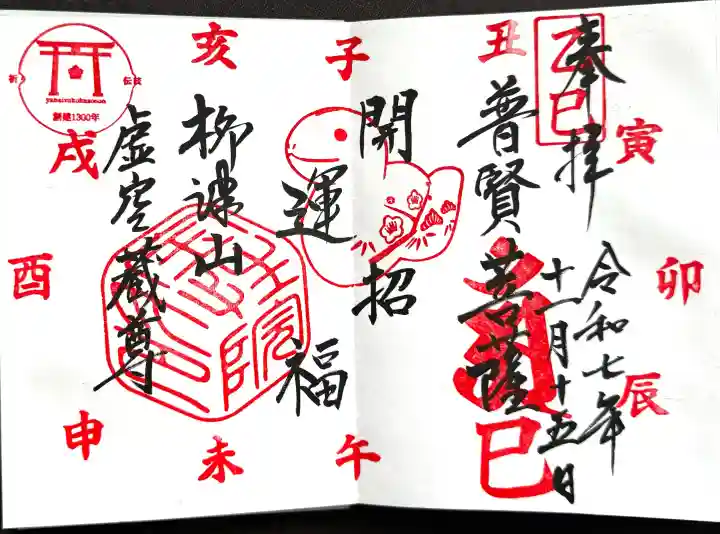 奉拝
令和七年
十一月十五日
普賢菩薩
開運招福
柳津山
虚空蔵尊
乙巳
子
丑
寅
卯
辰
巳
午
未
申
酉
戌
亥
yanaizukokuzoson
創建1300年